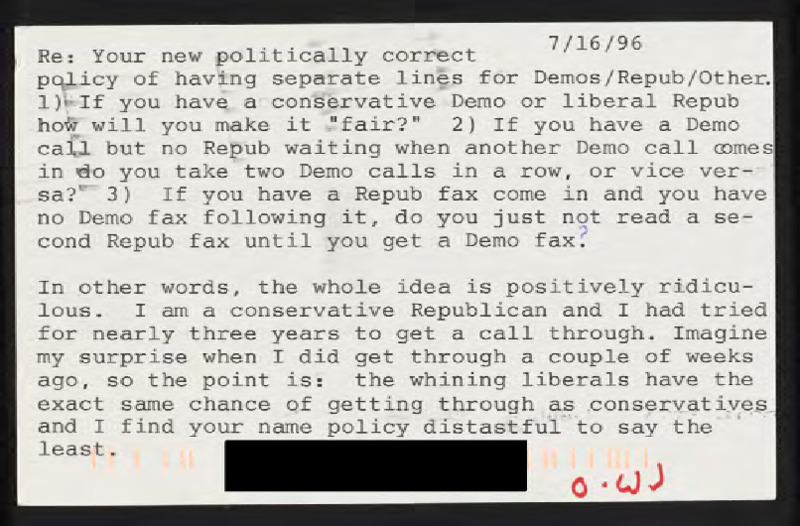 7/16/96
Re: Your new politically correct
policy of having separate lines for Demos/Repub/Other.
1) If you have a conservative Demo or liberal Repub
how will you make it "fair?"  2) If you have a Demo
call but no Repub waiting when another Demo call comes
in do you take two Demo calls in a row, or vice ver-
sa?"  3)  If you have a Repub fax come in and you have
no Demo fax following it, do you just not read a se-
cond Repub fax until you get a Demo fax?

In other words, the whole idea is positively ridicu-
lous.  I am a conservative Republican and I had tried
for nearly three years to get a call through. Imagine
my surprise when I did get through a couple of weeks
ago, so the point is:  the whining liberals have the
exact same chance of getting through as conservatives
and I find your name policy distastful to say the
least.